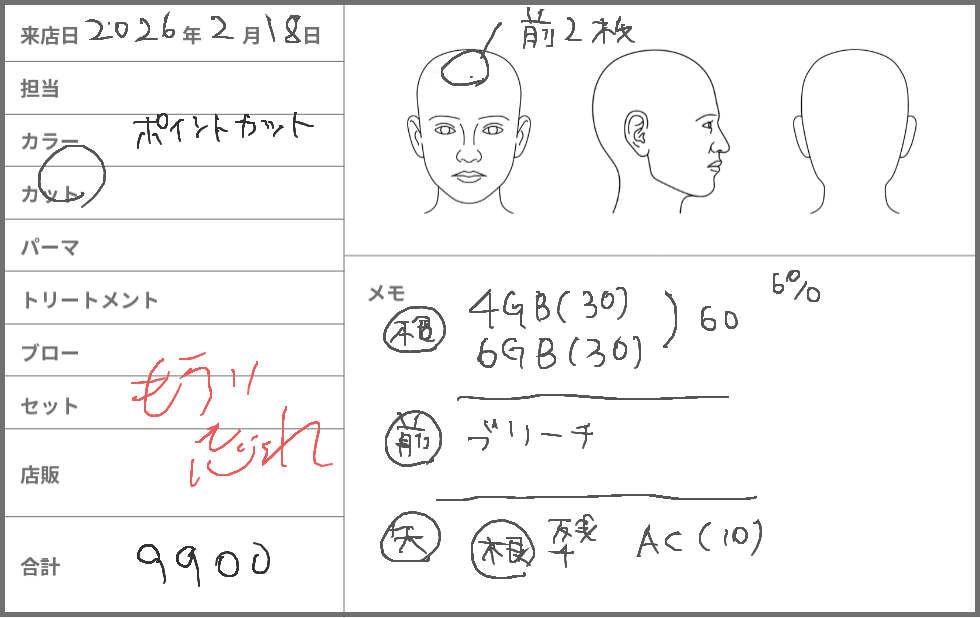 来店日 2026年2月18日
担当
カラー ポイントカット
カット
パーマ
トリートメント
ブロー
セット
もらい
忘れ
店販
合計 9900
前2本
メモ
6%
根 4GB(30)
6GB(30)
60
前 ブリーチ
根 AC(10)